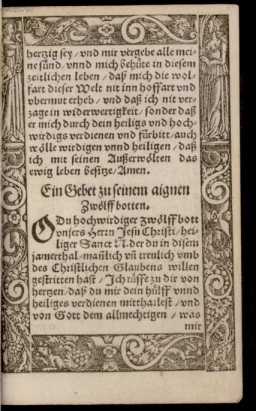 hertzig sey / vnd mir vergebe alle mei-
ne sünd / vnnd mich behüte in diesem
zeitlichen leben / daß mich die wol-
fart dieser Welt nit inn hoffart vnd
vbermut erheb / vnd daß ich nit ver-
zage in widerwertigkeit / sonder daß
er mich durch dein heiligs vnd hoch-
wirdigs verdienen vnd fürbitt / auch
wölle wirdigen vnnd heiligen / daß
ich mit seinen Außerwölten das
ewig leben besitze / Amen.
Ein Gebet zu seinem aignen
Zwölff botten.
O Du hochwirdiger zwölff bott
vnsers Herrn Jesu Christi / hei-
liger Sanct N. der du in disem
jamerthal / mañlich vñ trewlich vmb
des Christlichen Glaubens willen
gestritten hast / Ich rüffe zu dir von
hertzen / daß du mir dein hülff vnnd
heiliges verdienen mitthailest / vnd
von Gott dem allmechtigen / was
mir